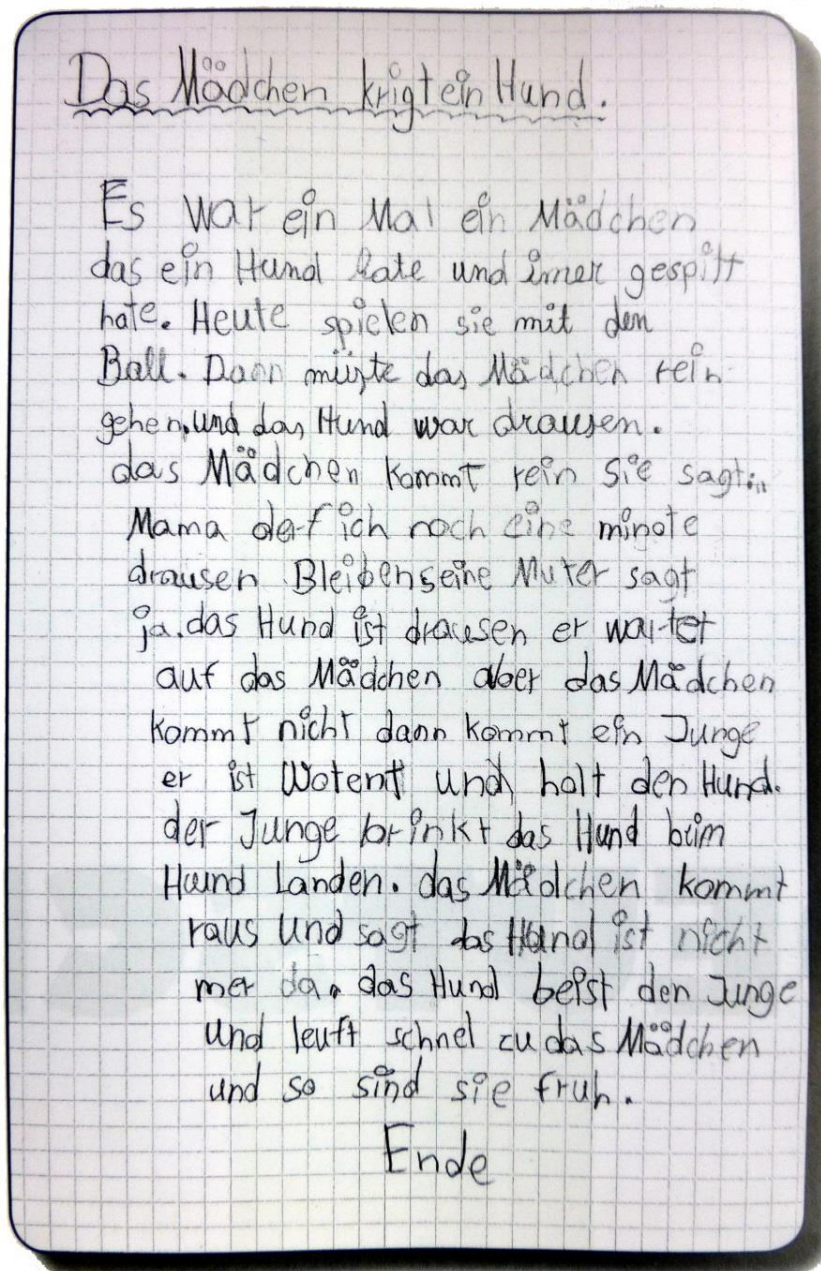 Das Mädchen krigt ein Hund.
Es war ein Mal ein Mädchen
das ein Hund hate und imer gespilt
hate. Heute spielen sie mit den
Ball. Dann müste das Mädchen rein
gehen, und das Hund war drausen.
das Mädchen kommt rein Sie sagt:„
Mama darf ich noch eine minote
drausen Bleiben seine Muter sagt
ja. das Hund ist drausen er wartet
auf das Mädchen aber das Mädchen
kommt nicht dann kommt ein Junge
er ist Wotent und holt den Hund.
der Junge brinkt das Hund beim
Hund Landen. das Mädchen kommt
raus und sagt das Hund ist nicht
mer da. das Hund beist den Junge
und leuft schnel zu das Mädchen
und so sind sie fruh.
Ende